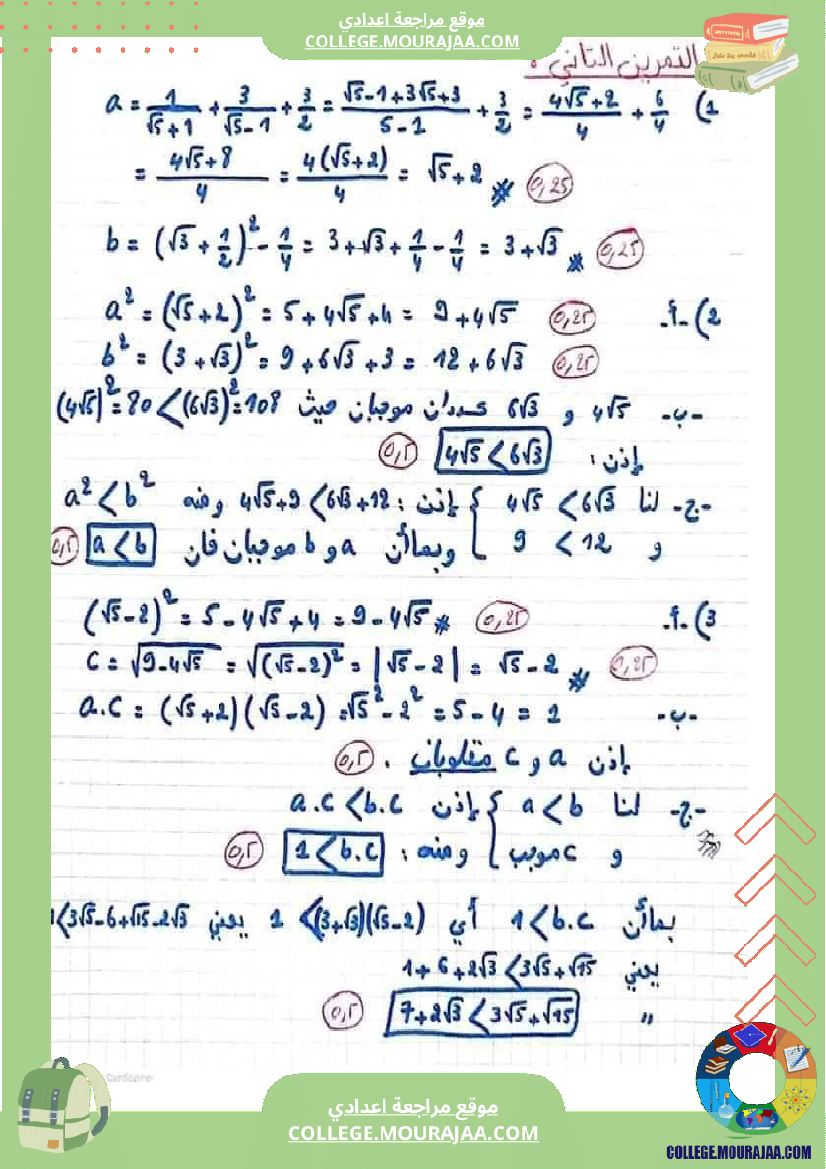 موقع مراجعة اعدادي
COLLEGE.MOURAJAA.COM
التمرين الثاني :
1) a = 1/(√5+1) + 3/(√5-1) + 3/2 = (√5-1+3√5+3)/(5-1) + 3/2 = (4√5+2)/4 + 6/4
= (4√5+8)/4 = 4(√5+2)/4 = √5+2 0,25
b = (√3 + 1/2)² - 1/4 = 3+√3+1/4-1/4 = 3+√3 0,25
2) أ- a² = (√5+2)² = 5+4√5+4 = 9+4√5 0,25
b² = (3+√3)² = 9+6√3+3 = 12+6√3 0,25
-ب- 4√5 و 6√3 عددان موجبان حيث (4√5)²=80<(6√3)²=108
إذن : 4√5<6√3 0,5
-ج- لنا { 4√5 <6√3 إذن : 4√5+9 <6√3+12 ومنه a²<b²
و 9 < 12 وبماأن a و b موجبان فان a<b 0,5
3) أ- (√5-2)² = 5-4√5+4 = 9-4√5 0,25
c = √(9-4√5) = √((√5-2)²) = |√5-2| = √5-2 0,25
-ب- a.c = (√5+2)(√5-2) = √5²-2² = 5-4 = 1
إذن a و c مقلوبان . 0,5
-ج- لنا { a<b إذن a.c<b.c
و c موجب ومنه : 1<b.c 0,5
بماأن 1<b.c أي 1 <(3+√3)(√5-2) يعني 1<3√5-6+√15-2√3
يعني 1+6+2√3<3√5+√15
" 7+2√3<3√5+√15 0,5
موقع مراجعة اعدادي
COLLEGE.MOURAJAA.COM
COLLEGE.MOURAJAA.COM